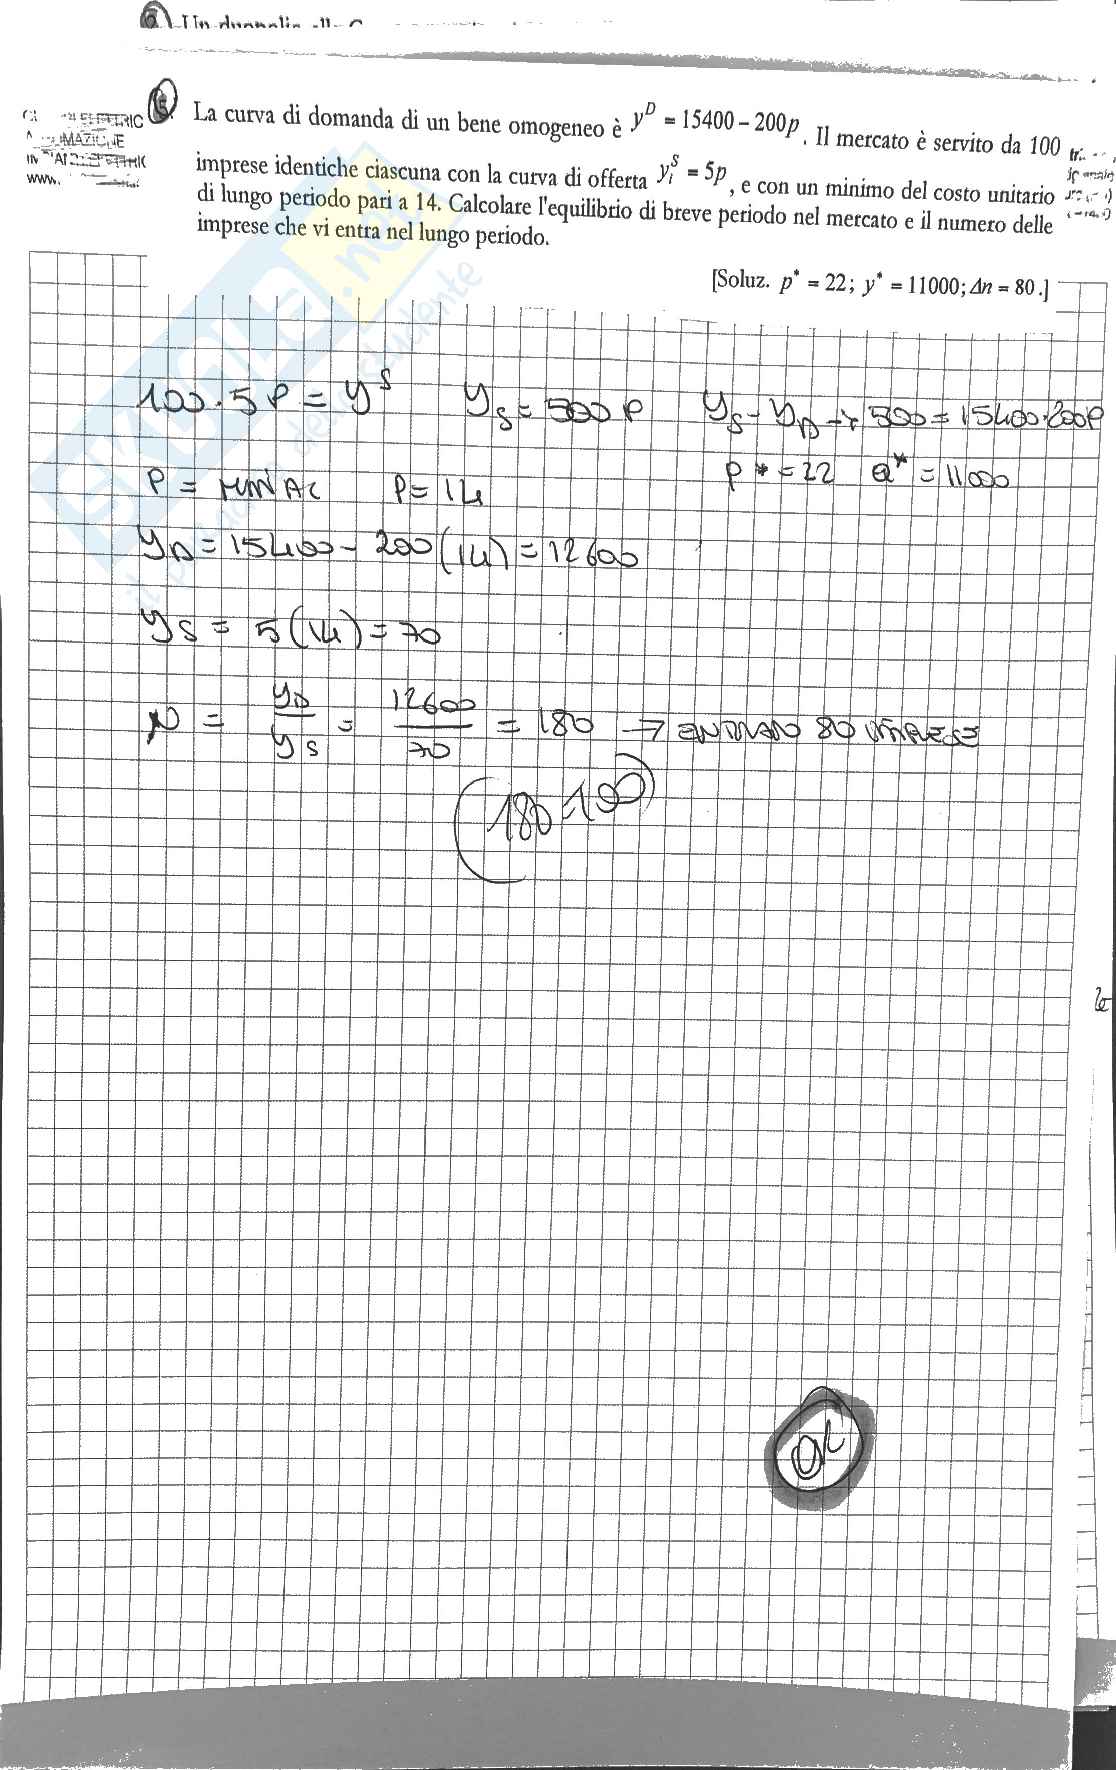 6. Un duopolio alla C
5. La curva di domanda di un bene omogeneo è y^D = 15400 – 200p. Il mercato è servito da 100
imprese identiche ciascuna con la curva di offerta y_i^S = 5p, e con un minimo del costo unitario
di lungo periodo pari a 14. Calcolare l'equilibrio di breve periodo nel mercato e il numero delle
imprese che vi entra nel lungo periodo.
[Soluz. p* = 22; y* = 11000; Δn = 80.]
100·5P = y^S y_S = 500 P y_S - y_D → 500 = 15400·200P
P = MIN AC P = 14 P* = 22 Q* = 11000
y_D = 15400 - 200(14) = 12600
y_S = 5(14) = 70
N = y_D/y_S = 12600/70 = 180 → ENTRANO 80 IMPRESE
(180-100)
OK
SKUOLA.net
il paradiso dello studente
WWW.